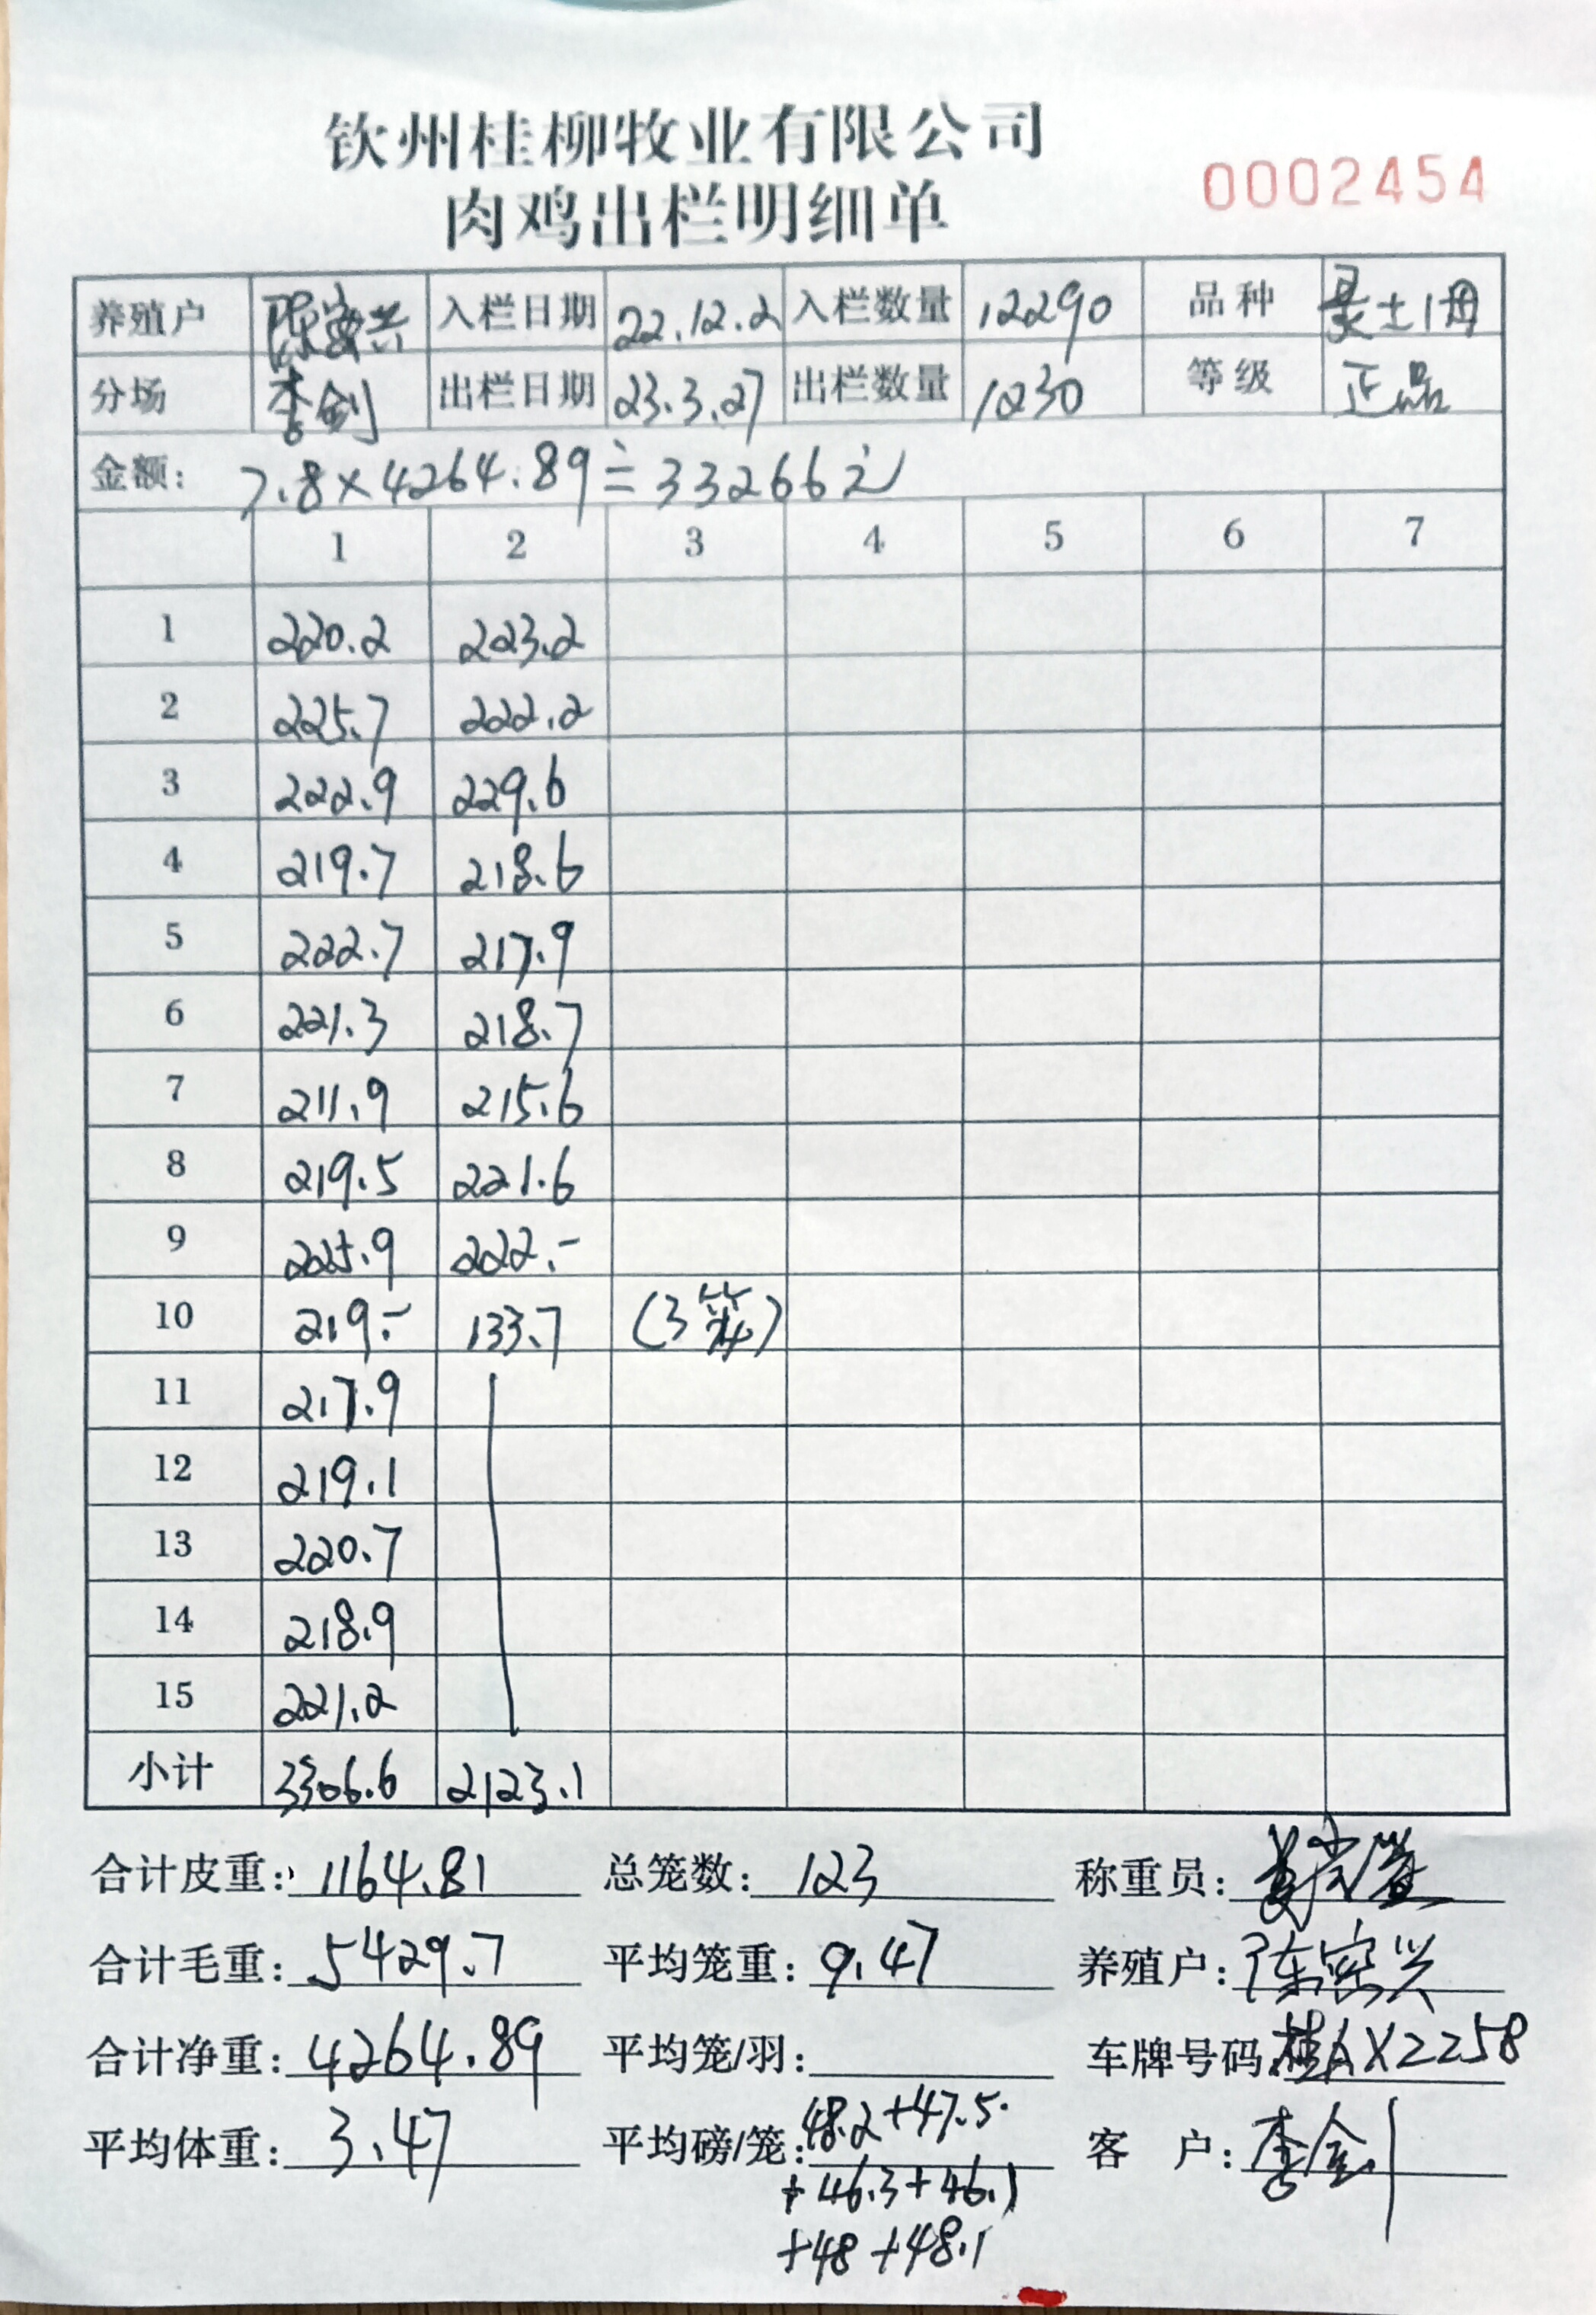 钦州桂柳牧业有限公司
肉鸡出栏明细单
0002454
养殖户 陈密兴 入栏日期 22.12.2 入栏数量 12290 品种 灵土1母
分场 李剑 出栏日期 23.3.27 出栏数量 1230 等级 正品
金额: 7.8×4264.89≐33266元
1 2 3 4 5 6 7
1 220.2 223.2
2 225.7 222.2
3 222.9 229.6
4 219.7 218.6
5 222.7 217.9
6 221.3 218.7
7 211.9 215.6
8 219.5 221.6
9 225.9 222.-
10 219.- 133.7 (3笼)
11 217.9
12 219.1
13 220.7
14 218.9
15 221.2
小计 3306.6 2123.1
合计皮重: 1164.81 总笼数: 123 称重员:
合计毛重: 5429.7 平均笼重: 9.47 养殖户: 陈密兴
合计净重: 4264.89 平均笼/羽: 车牌号码: 桂AX2258
平均体重: 3.47 平均磅/笼: 48.2+47.5 客 户: 李剑
+46.3+46.1
+48+48.1